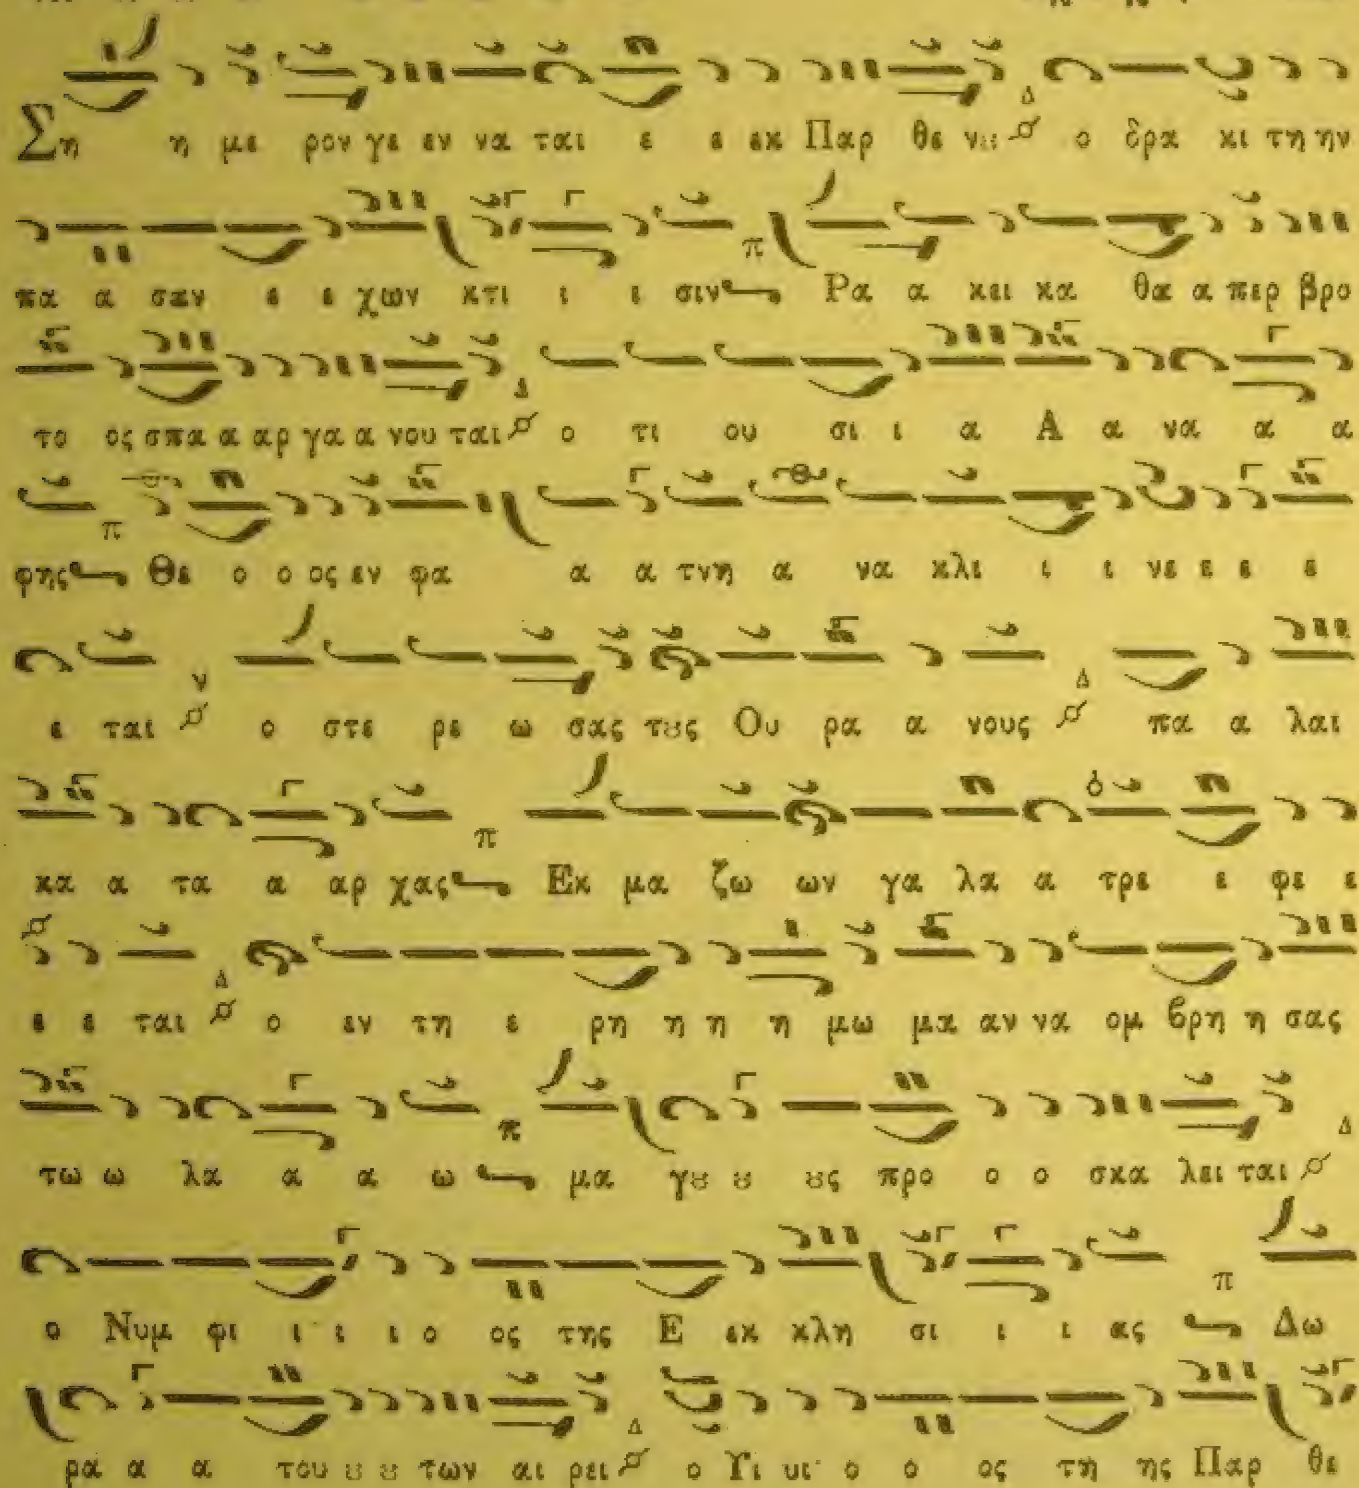 Ση η με ρον γε εν να ται ε ε εκ Παρ θε νȣ Δ ο δρα κι τη ην
πα α σαν ε ε χων κτι ι ι σιν π Ρα α κει κα θα α περ βρο
το ος σπα α αρ γα α νου ται Δ ο τι ου σι ι α Α α να α α
φης π Θε ο ο ος εν φα α α τνη α να κλι ι ι νε ε ε ε
ε ται ν ο στε ρε ω σας τȣς Ου ρα α νους Δ πα α λαι
κα α τα α αρ χας π Εκ μα ζω ων γα λα α τρε ε φε ε
ε ε ται Δ ο εν τη ε ρη η η η μω μα αν να ομ βρη η σας
τω ω λα α α ω π μα γȣ ȣ ȣς προ ο ο σκα λει ται Δ
ο Νυμ φι ι ι ι ο ος της Ε εκ κλη σι ι ι ας π Δω
ρα α α του ȣ ȣ των αι ρει Δ ο Υι υι ο ο ος τη ης Παρ θε